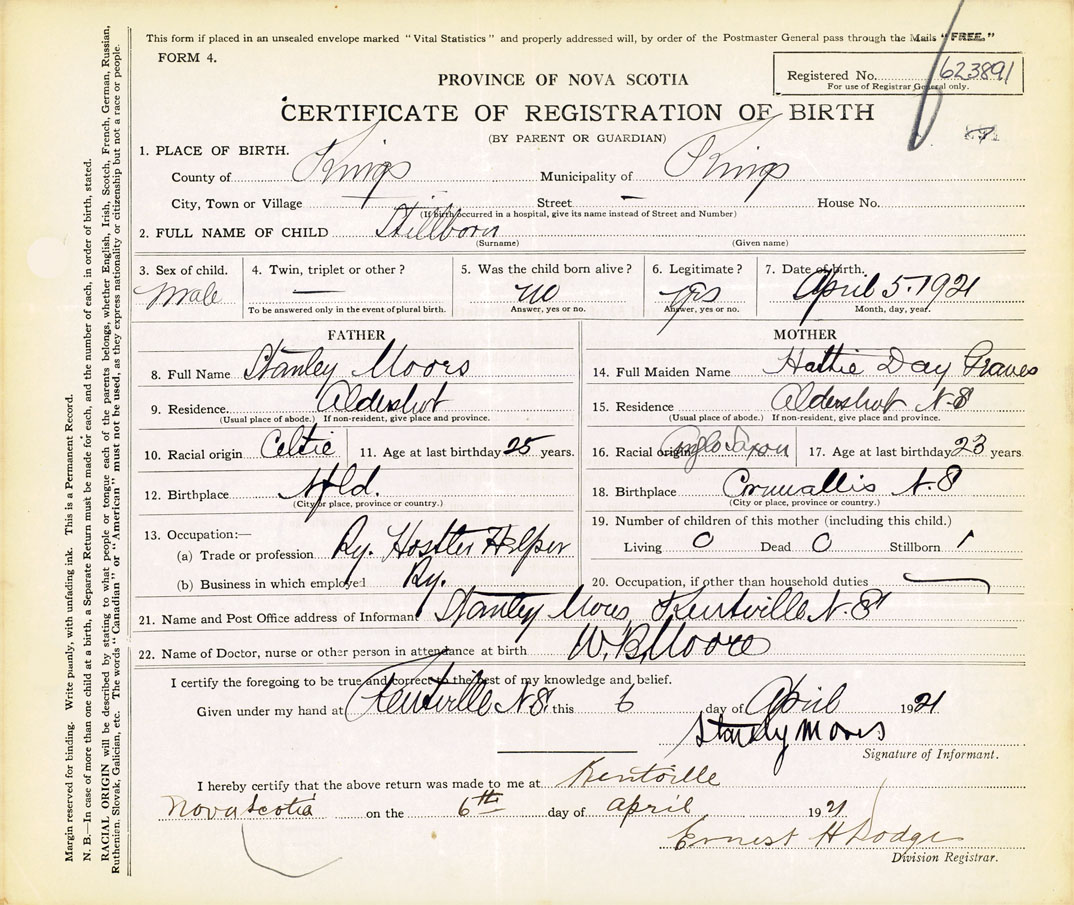 This form if placed in an unsealed envelope marked "Vital Statistics" and properly addressed will, by order of the Postmaster General pass through the Mails "FREE."
FORM 4.
PROVINCE OF NOVA SCOTIA
Registered No. 623891
For use of Registrar General only.
CERTIFICATE OF REGISTRATION OF BIRTH
(BY PARENT OR GUARDIAN)
1. PLACE OF BIRTH.
County of Kings Municipality of Kings
City, Town or Village — Street — House No.
(If birth occurred in a hospital, give its name instead of Street and Number)
2. FULL NAME OF CHILD Stillborn
(Surname) (Given name)
3. Sex of child. 4. Twin, triplet or other? 5. Was the child born alive? 6. Legitimate? 7. Date of birth.
Male — no yes April 5-1921
To be answered only in the event of plural birth. Answer, yes or no. Answer, yes or no. Month, day, year.
FATHER
8. Full Name Stanley Moors
9. Residence. Aldershot
(Usual place of abode.) If non-resident, give place and province.
10. Racial origin Celtic 11. Age at last birthday 25 years.
12. Birthplace Nfld.
(City or place, province or country.)
13. Occupation:—
(a) Trade or profession Ry. Hostler Helper
(b) Business in which employed Ry.
MOTHER
14. Full Maiden Name Hattie Day Graves
15. Residence Aldershot N.S
(Usual place of abode.) If non-resident, give place and province.
16. Racial origin Anglo Saxon 17. Age at last birthday 23 years
18. Birthplace Cornwallis N.S
(City or place, province or country.)
19. Number of children of this mother (including this child.)
Living 0 Dead 0 Stillborn 1
20. Occupation, if other than household duties —
21. Name and Post Office address of Informant Stanley Moors Kentville N.S
22. Name of Doctor, nurse or other person in attendance at birth W.B. Moore
I certify the foregoing to be true and correct to the best of my knowledge and belief.
Given under my hand at Kentville N.S. this 6 day of April 1921
Stanley Moors
Signature of Informant.
I hereby certify that the above return was made to me at Kentville
Nova Scotia on the 6th day of April 1921
Ernest H Dodge
Division Registrar.
Margin reserved for binding. Write plainly, with unfading ink. This is a Permanent Record.
N. B.—In case of more than one child at a birth, a Separate Return must be made for each, and the number of each, in order of birth, stated.
RACIAL ORIGIN will be described by stating to what people or tongue each of the parents belongs, whether English, Irish, Scotch, French, German, Russian,
Ruthenian, Slovak, Galician, etc. The words "Canadian" or "American" must not be used, as they express nationality or citizenship but not a race or people.